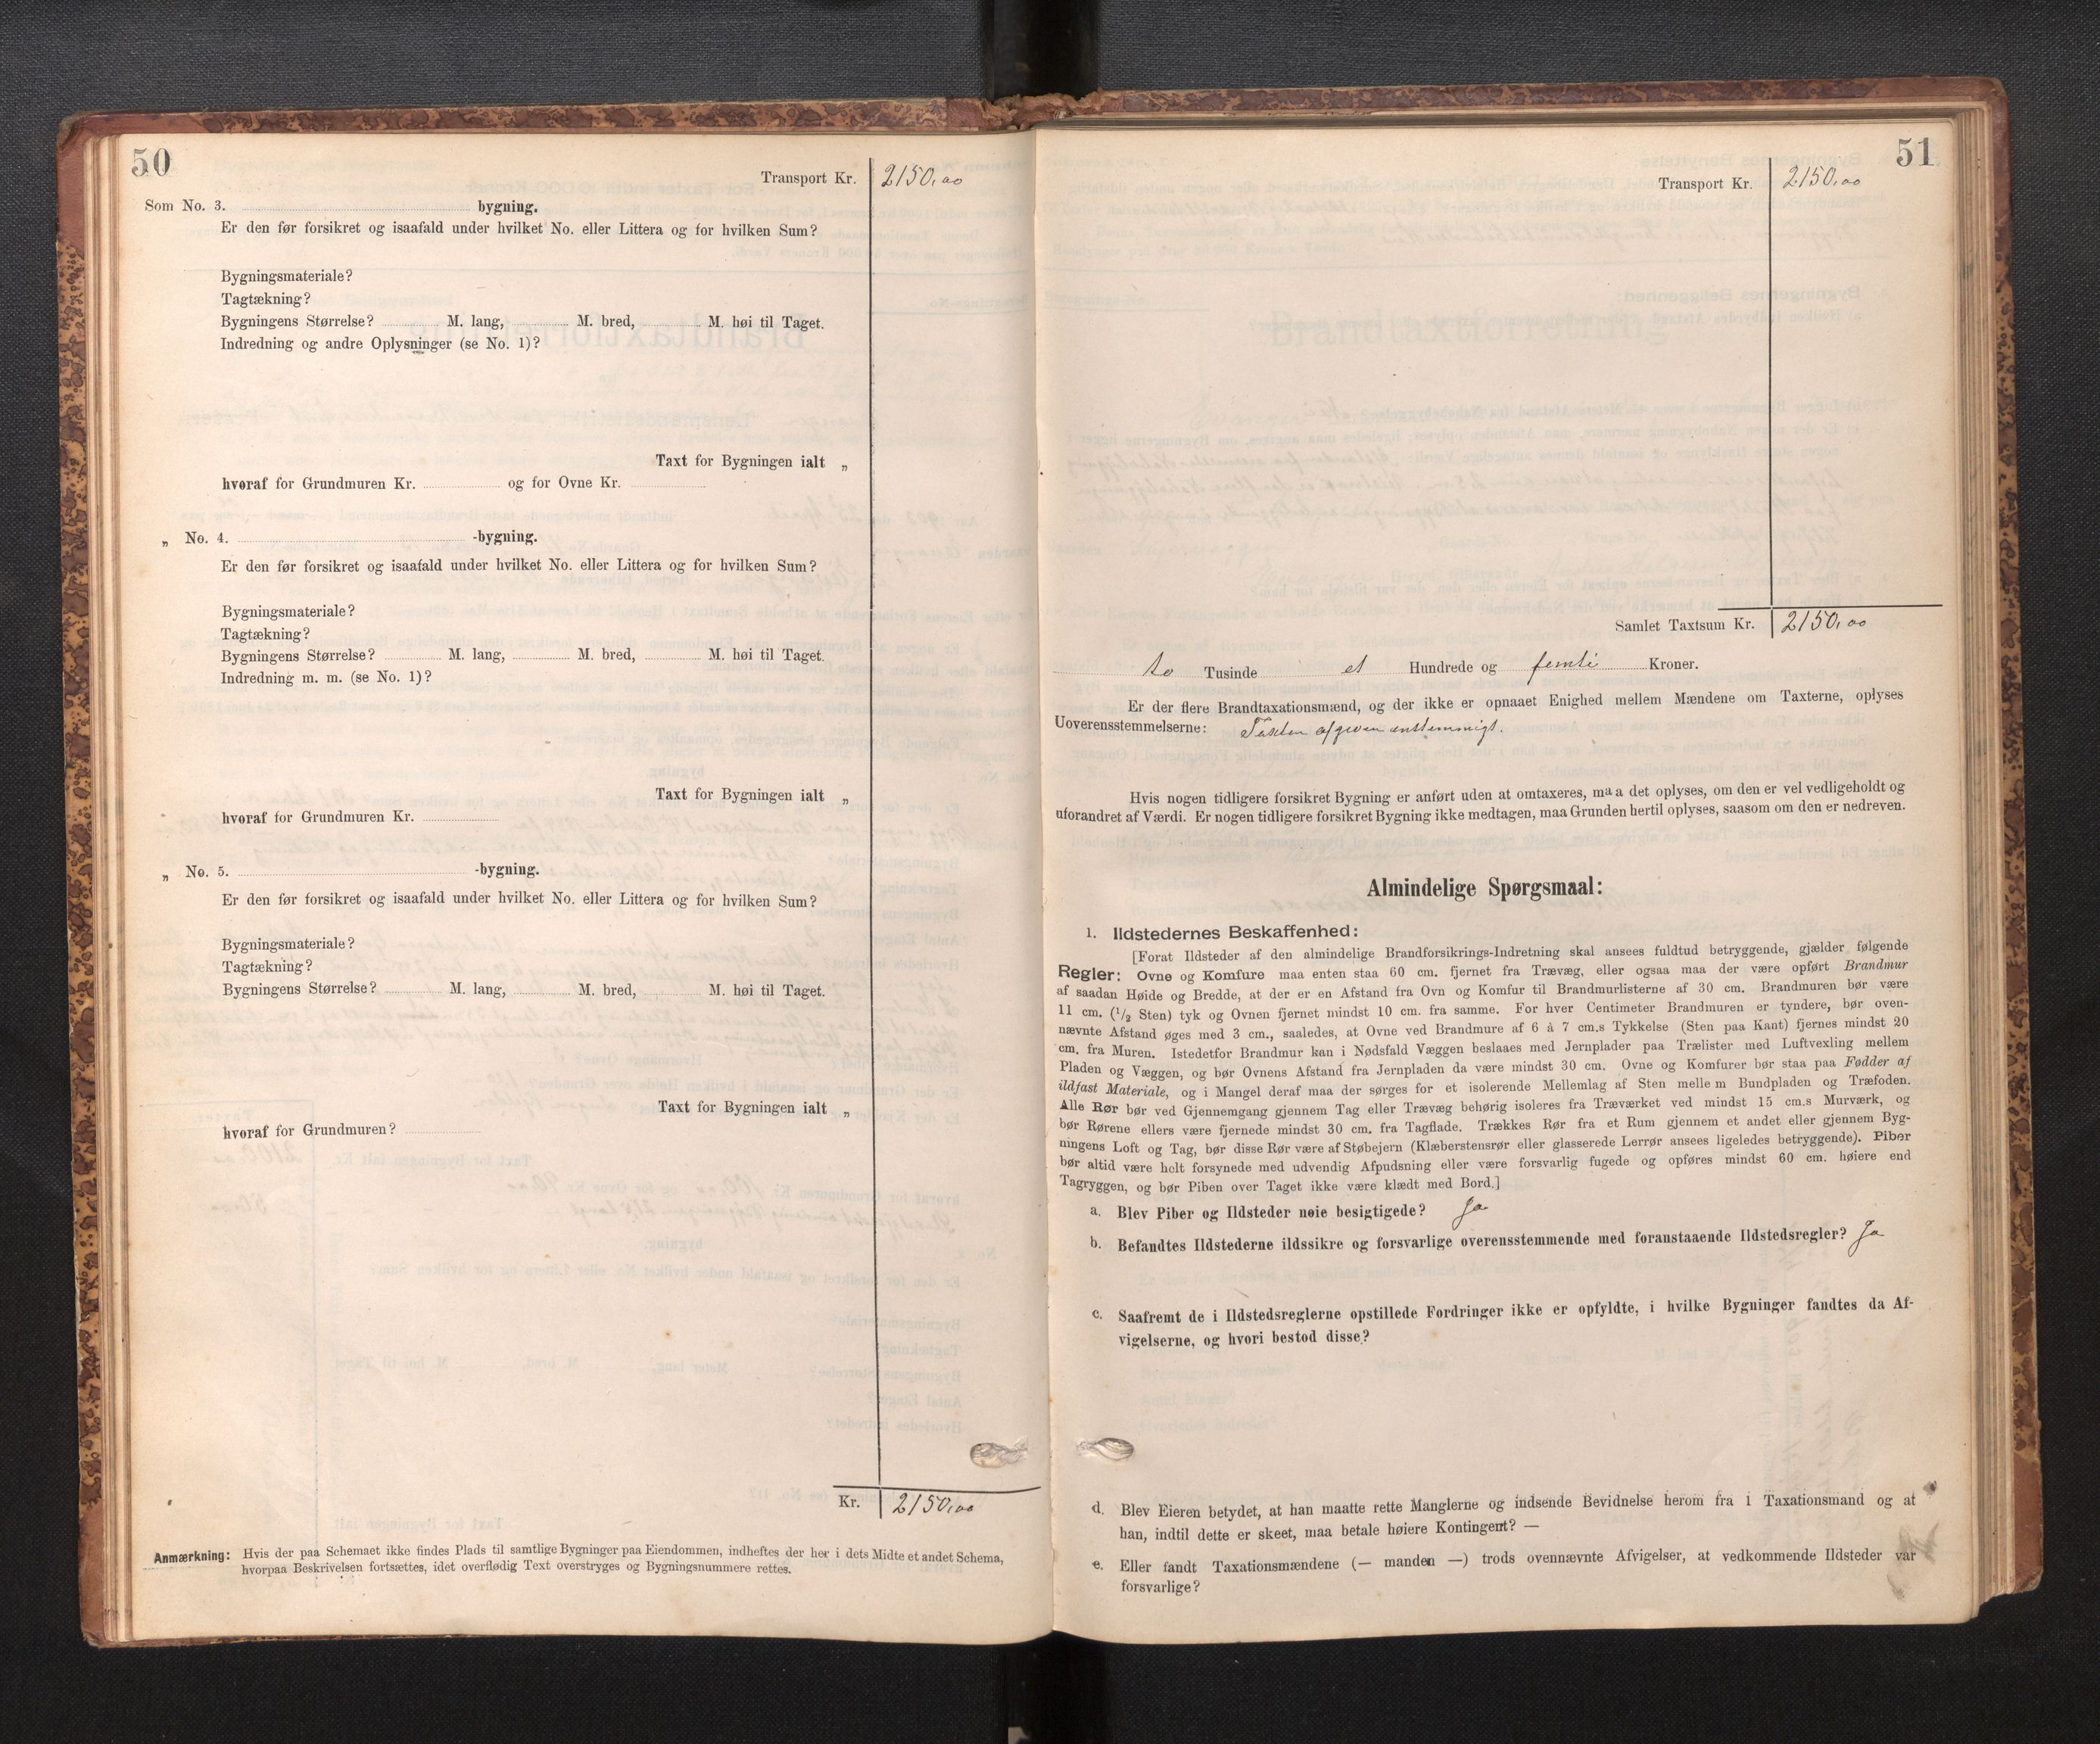 50
Transport Kr. 2150,00
Som No. 3. bygning.
Er den før forsikret og isaafald under hvilket No. eller Littera og for hvilken Sum?
Bygningsmateriale?
Tagtækning?
Bygningens Størrelse? M. lang, M. bred, M. høi til Taget.
Indredning og andre Oplysninger (se No. 1)?
Taxt for Bygningen ialt „
hvoraf for Grundmuren Kr. og for Ovne Kr.
„ No. 4. -bygning.
Er den før forsikret og isaafald under hvilket No. eller Littera og for hvilken Sum?
Bygningsmateriale?
Tagtækning?
Bygningens Størrelse? M. lang, M. bred, M. høi til Taget.
Indredning m. m. (se No. 1)?
Taxt for Bygningen ialt „
hvoraf for Grundmuren Kr.
„ No. 5. -bygning.
Er den før forsikret og isaafald under hvilket No. eller Littera og for hvilken Sum?
Bygningsmateriale?
Tagtækning?
Bygningens Størrelse? M. lang, M. bred, M. høi til Taget.
Taxt for Bygningen ialt „
hvoraf for Grundmuren?
Kr. 2150,00
Anmærkning: Hvis der paa Schemaet ikke findes Plads til samtlige Bygninger paa Eiendommen, indheftes der her i dets Midte et andet Schema,
hvorpaa Beskrivelsen fortsættes, idet overflødig Text overstryges og Bygningsnummere rettes.
51
Transport Kr. 2150,00
Samlet Taxtsum Kr. 2150,00
to Tusinde et Hundrede og femti Kroner.
Er der flere Brandtaxationsmænd, og der ikke er opnaaet Enighed mellem Mændene om Taxterne, oplyses
Uoverensstemmelserne: Taxten afgiven enstemmigt.
Hvis nogen tidligere forsikret Bygning er anført uden at omtaxeres, maa det oplyses, om den er vel vedligeholdt og
uforandret af Værdi. Er nogen tidligere forsikret Bygning ikke medtagen, maa Grunden hertil oplyses, saasom om den er nedreven.
Almindelige Spørgsmaal:
1. Ildstedernes Beskaffenhed:
[Forat Ildsteder af den almindelige Brandforsikrings-Indretning skal ansees fuldtud betryggende, gjælder følgende
Regler: Ovne og Komfure maa enten staa 60 cm. fjernet fra Trævæg, eller ogsaa maa der være opført Brandmur
af saadan Høide og Bredde, at der er en Afstand fra Ovn og Komfur til Brandmurlisterne af 30 cm. Brandmuren bør være
11 cm. (1/2 Sten) tyk og Ovnen fjernet mindst 10 cm. fra samme. For hver Centimeter Brandmuren er tyndere, bør oven-
nævnte Afstand øges med 3 cm., saaledes, at Ovne ved Brandmure af 6 à 7 cm.s Tykkelse (Sten paa Kant) fjernes mindst 20
cm. fra Muren. Istedetfor Brandmur kan i Nødsfald Væggen beslaaes med Jernplader paa Trælister med Luftvexling mellem
Pladen og Væggen, og bør Ovnens Afstand fra Jernpladen da være mindst 30 cm. Ovne og Komfurer bør staa paa Fødder af
ildfast Materiale, og i Mangel deraf maa der sørges for et isolerende Mellemlag af Sten mellem Bundpladen og Træfoden.
Alle Rør bør ved Gjennemgang gjennem Tag eller Trævæg behørig isoleres fra Træværket ved mindst 15 cm.s Murværk, og
bør Rørene ellers være fjernede mindst 30 cm. fra Tagflade. Trækkes Rør fra et Rum gjennem et andet eller gjennem Byg-
ningens Loft og Tag, bør disse Rør være af Støbejern (Klæberstensrør eller glasserede Lerrør ansees ligeledes betryggende). Piber
bør altid være helt forsynede med udvendig Afpudsning eller være forsvarlig fugede og opføres mindst 60 cm. høiere end
Tagryggen, og bør Piben over Taget ikke være klædt med Bord.]
a. Blev Piber og Ildsteder nøie besigtigede? Ja
b. Befandtes Ildstederne ildssikre og forsvarlige overensstemmende med foranstaaende Ildstedsregler? Ja
c. Saafremt de i Ildstedsreglerne opstillede Fordringer ikke er opfyldte, i hvilke Bygninger fandtes da Af-
vigelserne, og hvori bestod disse?
d. Blev Eieren betydet, at han maatte rette Manglerne og indsende Bevidnelse herom fra 1 Taxationsmand og at
han, indtil dette er skeet, maa betale høiere Kontingent? —
e. Eller fandt Taxationsmændene (— manden —) trods ovennævnte Afvigelser, at vedkommende Ildsteder var
forsvarlige?